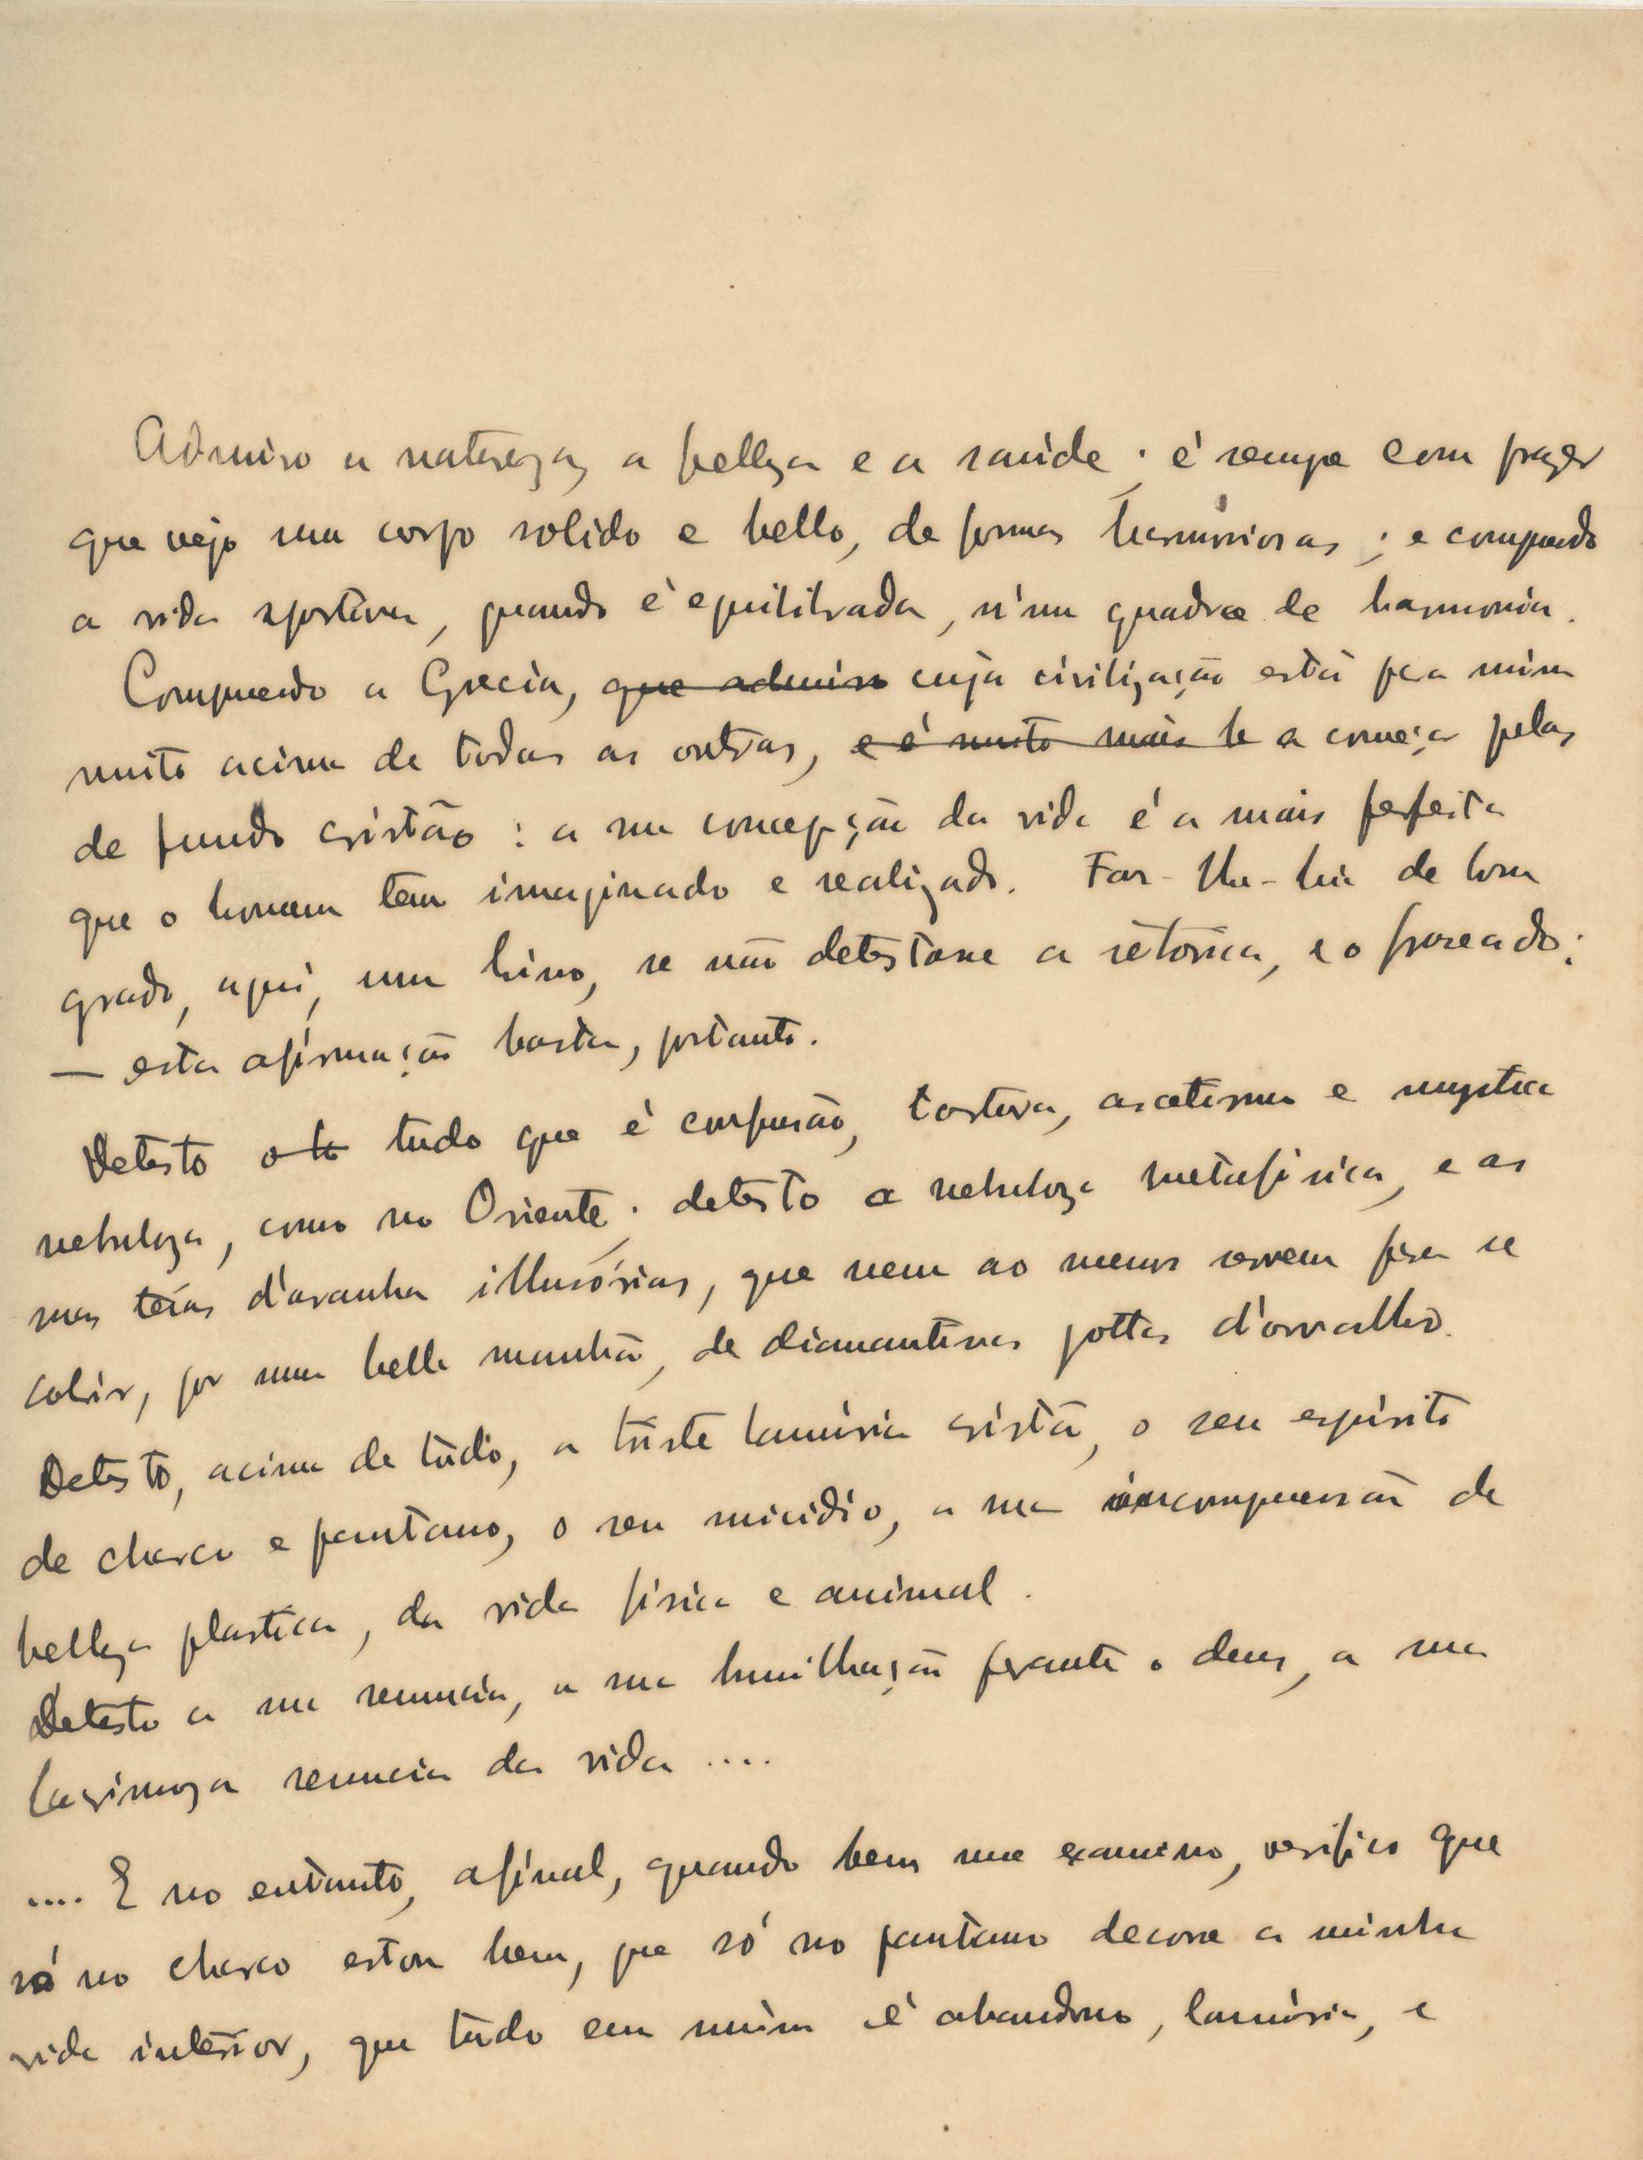 Admiro a natureza, a belleza e a saúde; é sempre com prazer
que vejo um corpo solido e bello, de formas harmóniosas; e comprendo
a vida sportiva, quando é equilibrada, n'um quadro de harmonia.
Comprendo a Grecia, que admiro cuja civilização está pra mim
muito acima de todas as outras, e é muito mais be a começar pelas
de fundo cristão: a sua concepção da vida é a mais perfeita
que o homem tem imaginado e realizado. Far-lhe-hia de bom
grado, aqui, um hino, se não detestasse a rétorica, e o fraseado;
— esta afirmação basta, portanto.
Detesto tudo que é confusão, tortura, ascetismo e mystica
nebuloza, como no Oriente; detesto a nebuloza metafisica, e as
suas teias d'aranha illusórias, que nem ao menos servem para se
cobrir, por uma bella manhã, de diamantinas gottas d'orvalho.
Detesto, acima de tudo, a triste lamúria cristã, o seu espirito
de charco e pantano, o seu suicidio, a sua incompreensão de
belleza plastica, da vida fisica e animal.
Detesto a sua renuncia, a sua humilhação perante o deus, a sua
lacrimoza renuncia da vida ....
.... E no entanto, afinal, quando bem me examino, verifico que
só no charco estou bem, que só no pantano decorre a minha
vida interior, que tudo em mim é abandono, lamúria, e